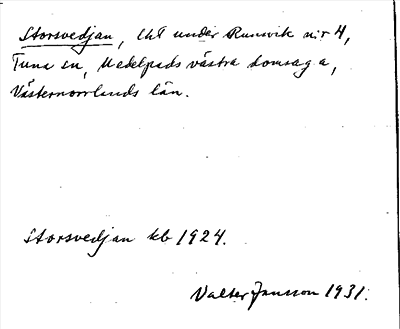 Storsvedjan, lht under Runsvik nr 4,
Tuna sn, Medelpads västra domsaga,
Västernorrlands län.
Storsvedjan kb 1924.
Valter Jansson 1931.